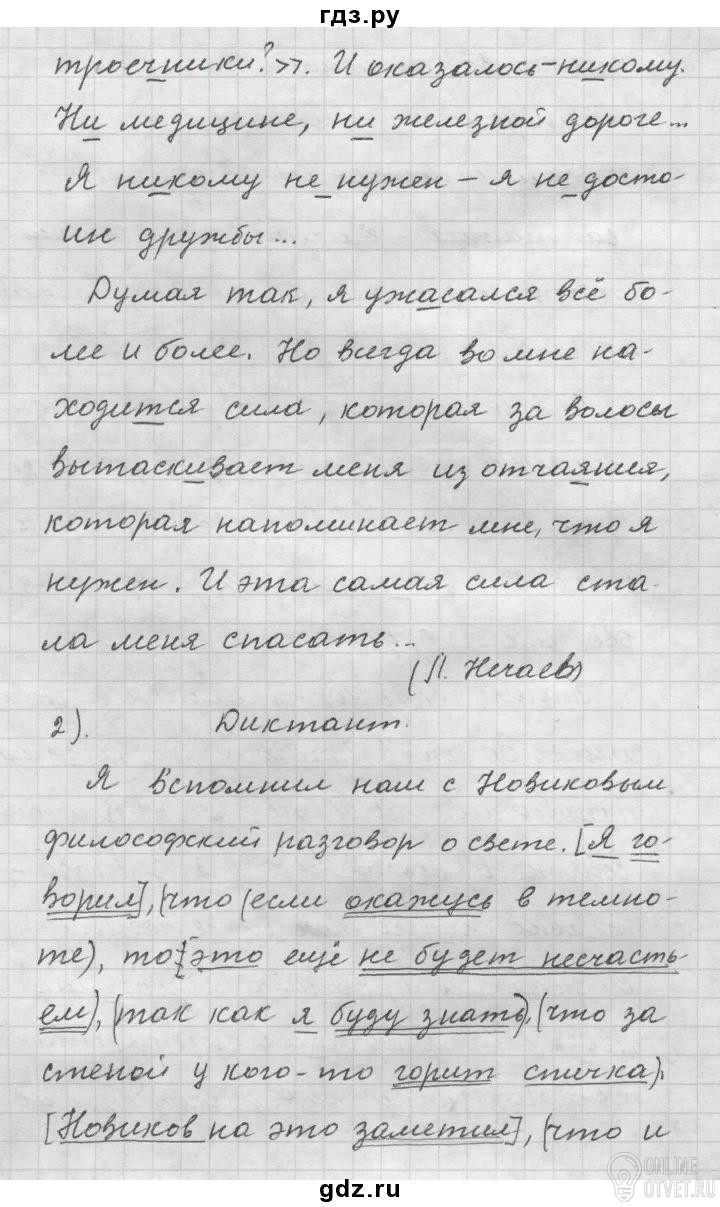 гдз.ру
троечники?». И оказалось-никому.
Ни медицине, ни железной дороге...
Я никому не нужен – я не досто-
ин дружбы...
Думая так, я ужасался всё бо-
лее и более. Но всегда во мне на-
ходится сила, которая за волосы
вытаскивает меня из отчаяния,
которая напоминает мне, что я
нужен. И эта самая сила ста-
ла меня спасать...
(Л. Нечаев)
2). Диктант.
Я вспомнил наш с Новиковым
философский разговор о свете. [Я го-
ворил], (что (если окажусь в темно-
те), то [это ещё не будет несчасть-
ем), (так как я буду знать), (что за
стеной у кого-то горит спичка).
[Новиков на это заметил], (что и
gdz.ru
ONLINE
OTVET.RU